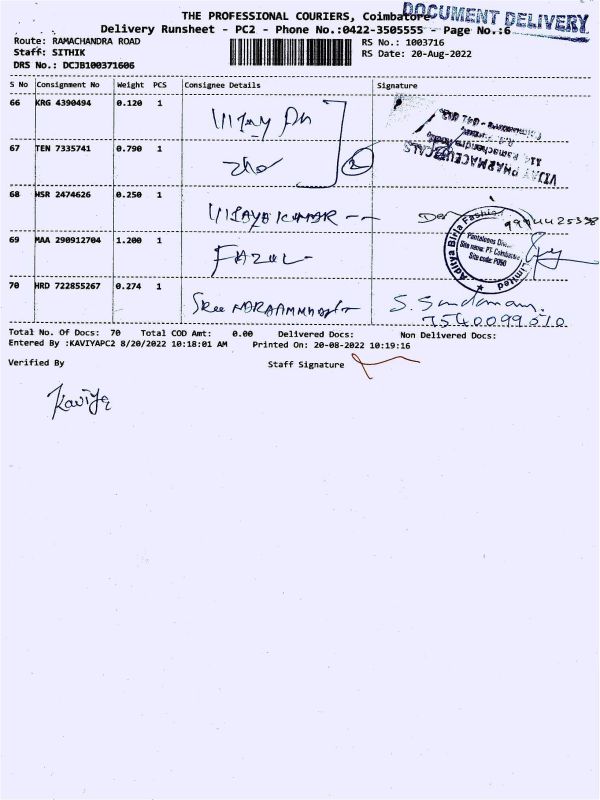 THE PROFESSIONAL COURIERS, Coimbatore
DOCUMENT DELIVERY
Delivery Runsheet - PC2 - Phone No.:0422-3505555 - Page No.:6
Route: RAMACHANDRA ROAD
RS No.: 1003716
Staff: SITHIK
RS Date: 20-Aug-2022
DRS No.: DCJB100371606
S No Consignment No Weight PCS Consignee Details Signature
66 KRG 4390494 0.120 1 Vijay Ph
VIJAY PHARMACEUTICALS
67 TEN 7335741 0.790 1
2
68 HSR 2474626 0.250 1 VIJAYAKUMAR
69 MAA 290912704 1.200 1 FAZUL
Aditya Birla Fashion Limited
Site code: P050
70 HRD 722855267 0.274 1 Sree
7540099010
Total No. Of Docs: 70 Total COD Amt: 0.00 Delivered Docs: Non Delivered Docs:
Entered By :KAVIYAPC2 8/20/2022 10:18:01 AM Printed On: 20-08-2022 10:19:16
Verified By Staff Signature
Kaviya